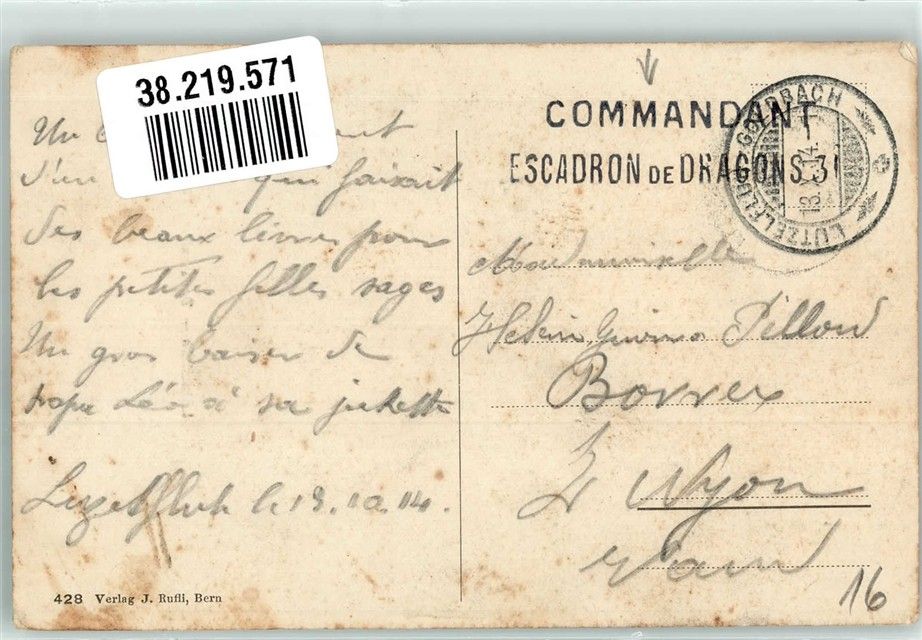 38.219.571
Un
d'un qui faisait
des beaux livres pour
les petites filles sages
Un gros baiser de
papa Léo à sa
le 13.10.14.
428 Verlag J. Rufli, Bern
COMMANDANT
ESCADRON DE DRAGONS 3
LÜTZELFLÜH-GOLDBACH
LÜTZELFLÜH
13.X.14
Mademoiselle
Pilloud
Borrex
s/ Nyon
Vaud
16